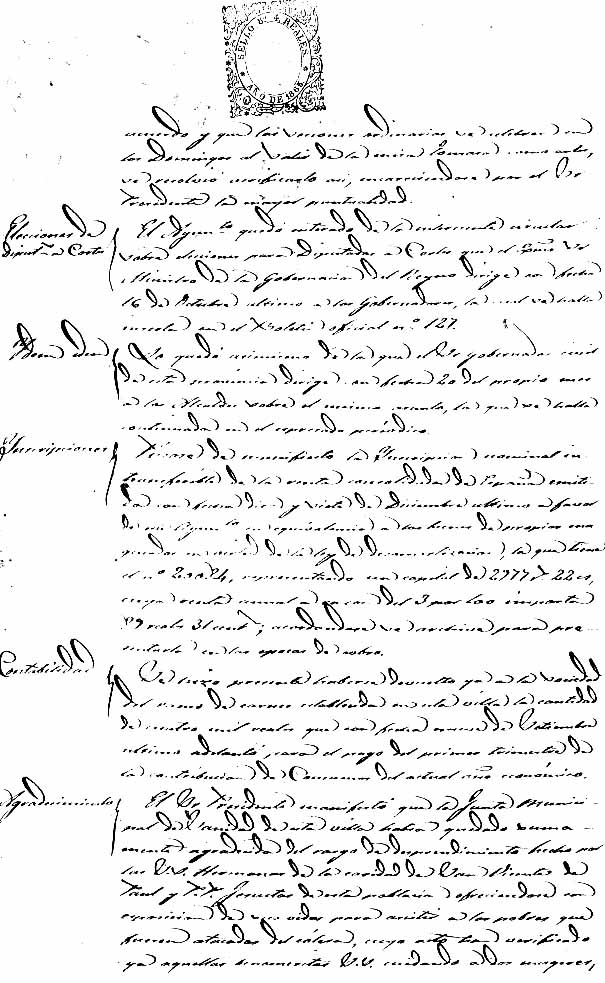 SELLO 8º 4 REALES
AÑO DE 1865
acuerdo y que las sesiones ordinarias se celebren en
los Domingos al salir de la misa
se resolvió verificarlo así, encareciéndose por el Sr
Presidente la mayor puntualidad.
Elecciones de
diputs a Cortes
El Ayunto quedó enterado de la interesante circular
sobre elecciones para Diputados a Cortes que el Exmo Sr
Ministro de la Gobernacion del Reyno dirige con fecha
16 de Octubre ultimo a los Gobernadores, la cual se halla
inserta en el Boletin oficial nº 127.
Idem idem
Lo quedó asimismo de la que el Sr gobernador civil
de esta provincia dirige con fecha 20 del propio mes
a los Alcaldes sobre el mismo asunto, la que se halla
continuada en el espresado periódico.
Inscripciones
de manifiesto la Inscripcion nominal in-
transferible de la renta consolidada de España emiti-
da con fecha diez y siete de Diciembre ultimo a favor
de este Ayunto en equivalencia a los bienes de propios ena
genados en virtud de la ley de desamortizacion, la que tiene
el nº 23024, representando un capital de 2977 22 cs,
cuya renta anual a razon del 3 por 100 importa
89 reales 31 cent; acordándose se archive para pre-
sentarla en las epocas de cobro.
Contabilidad
Se hizo presente haberse devuelto ya a la sociedad
del ramo de carnes establecida en esta villa la cantidad
de cuatro mil reales que con fecha de Setiembre
ultimo adelantó, para el pago del primer trimestre de
la contribucion de Consumos del actual año económico.
Agradecimiento
El Sr Presidente manifestó que la Junta Munici-
pal de Sanidad de esta villa habia quedado suma-
mente agradecida del rasgo de desprendimiento hecho por
las V.V. Hermanas de la caridad de San Vicente de
Paul y P.P. Jesuitas de esta poblacion ofreciéndose con
esposicion de sus vidas para asistir a los pobres que
fuesen atacados del cólera, cuyo acto han verificado
ya aquellas V.V. cuidando a dos mugeres,